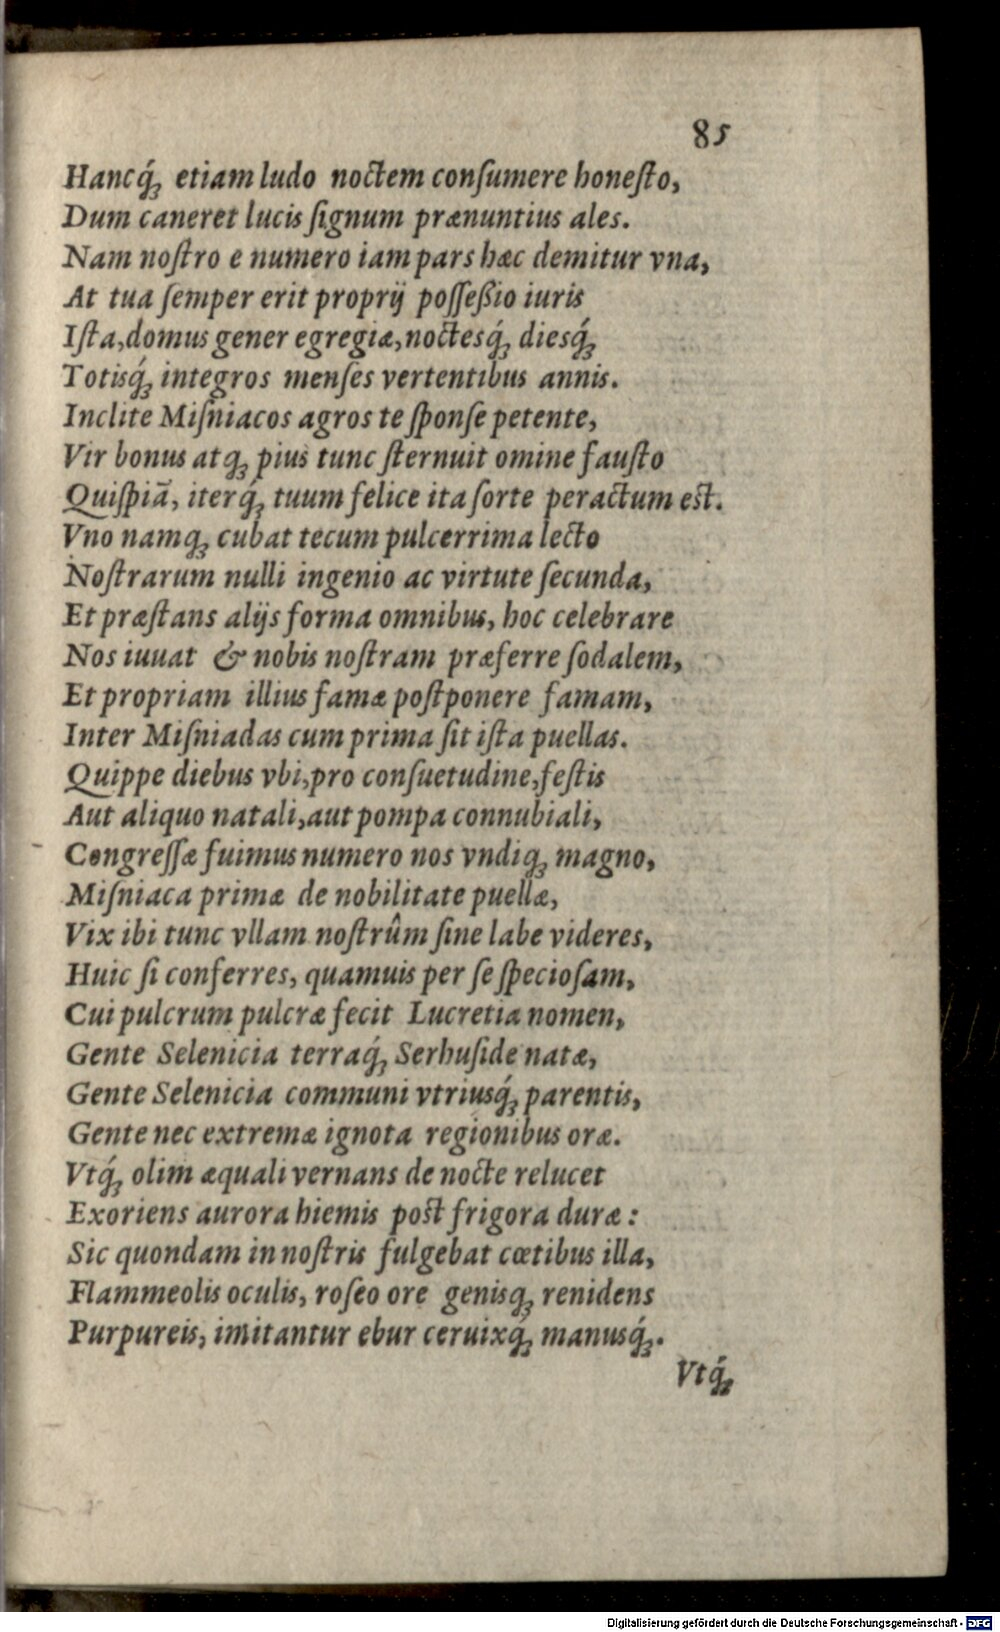 85
Hancq́ꝫ etiam ludo noctem conſumere honeſto,
Dum caneret lucis ſignum prænuntius ales.
Nam noſtro e numero iam pars hæc demitur vna,
At tua ſemper erit proprij poſſeßio iuris
Iſta, domus gener egregiæ, noctesq́ꝫ diesq́ꝫ
Totisq́ꝫ integros menſes vertentibus annis.
Inclite Miſniacos agros te ſponſe petente,
Vir bonus atqꝫ pius tunc ſternuit omine fauſto
Quiſpiā, iterq́ꝫ tuum felice ita ſorte peractum est.
Vno namqꝫ cubat tecum pulcerrima lecto
Noſtrarum nulli ingenio ac virtute ſecunda,
Et præſtans alijs forma omnibus, hoc celebrare
Nos iuuat & nobis noſtram præferre ſodalem,
Et propriam illius famæ poſtponere famam,
Inter Miſniadas cum prima ſit iſta puellas.
Quippe diebus vbi, pro conſuetudine, feſtis
Aut aliquo natali, aut pompa connubiali,
Congreſſæ fuimus numero nos vndiqꝫ magno,
Miſniaca primæ de nobilitate puellæ,
Vix ibi tunc vllam noſtrûm ſine labe videres,
Huic ſi conferres, quamuis per ſe ſpecioſam,
Cui pulcrum pulcræ fecit Lucretia nomen,
Gente Selenicia terraq́ꝫ Serhuſide natæ,
Gente Selenicia communi vtriusq́ꝫ parentis,
Gente nec extremæ ignota regionibus oræ.
Vtq́ꝫ olim æquali vernans de nocte relucet
Exoriens aurora hiemis post frigora duræ:
Sic quondam in noſtris fulgebat cœtibus illa,
Flammeolis oculis, roſeo ore genisqꝫ renidens
Purpureis, imitantur ebur ceruixq́ꝫ manusq́ꝫ.
Vtq́ꝫ
Digitalisierung gefördert durch die Deutsche Forschungsgemeinschaft - DFG